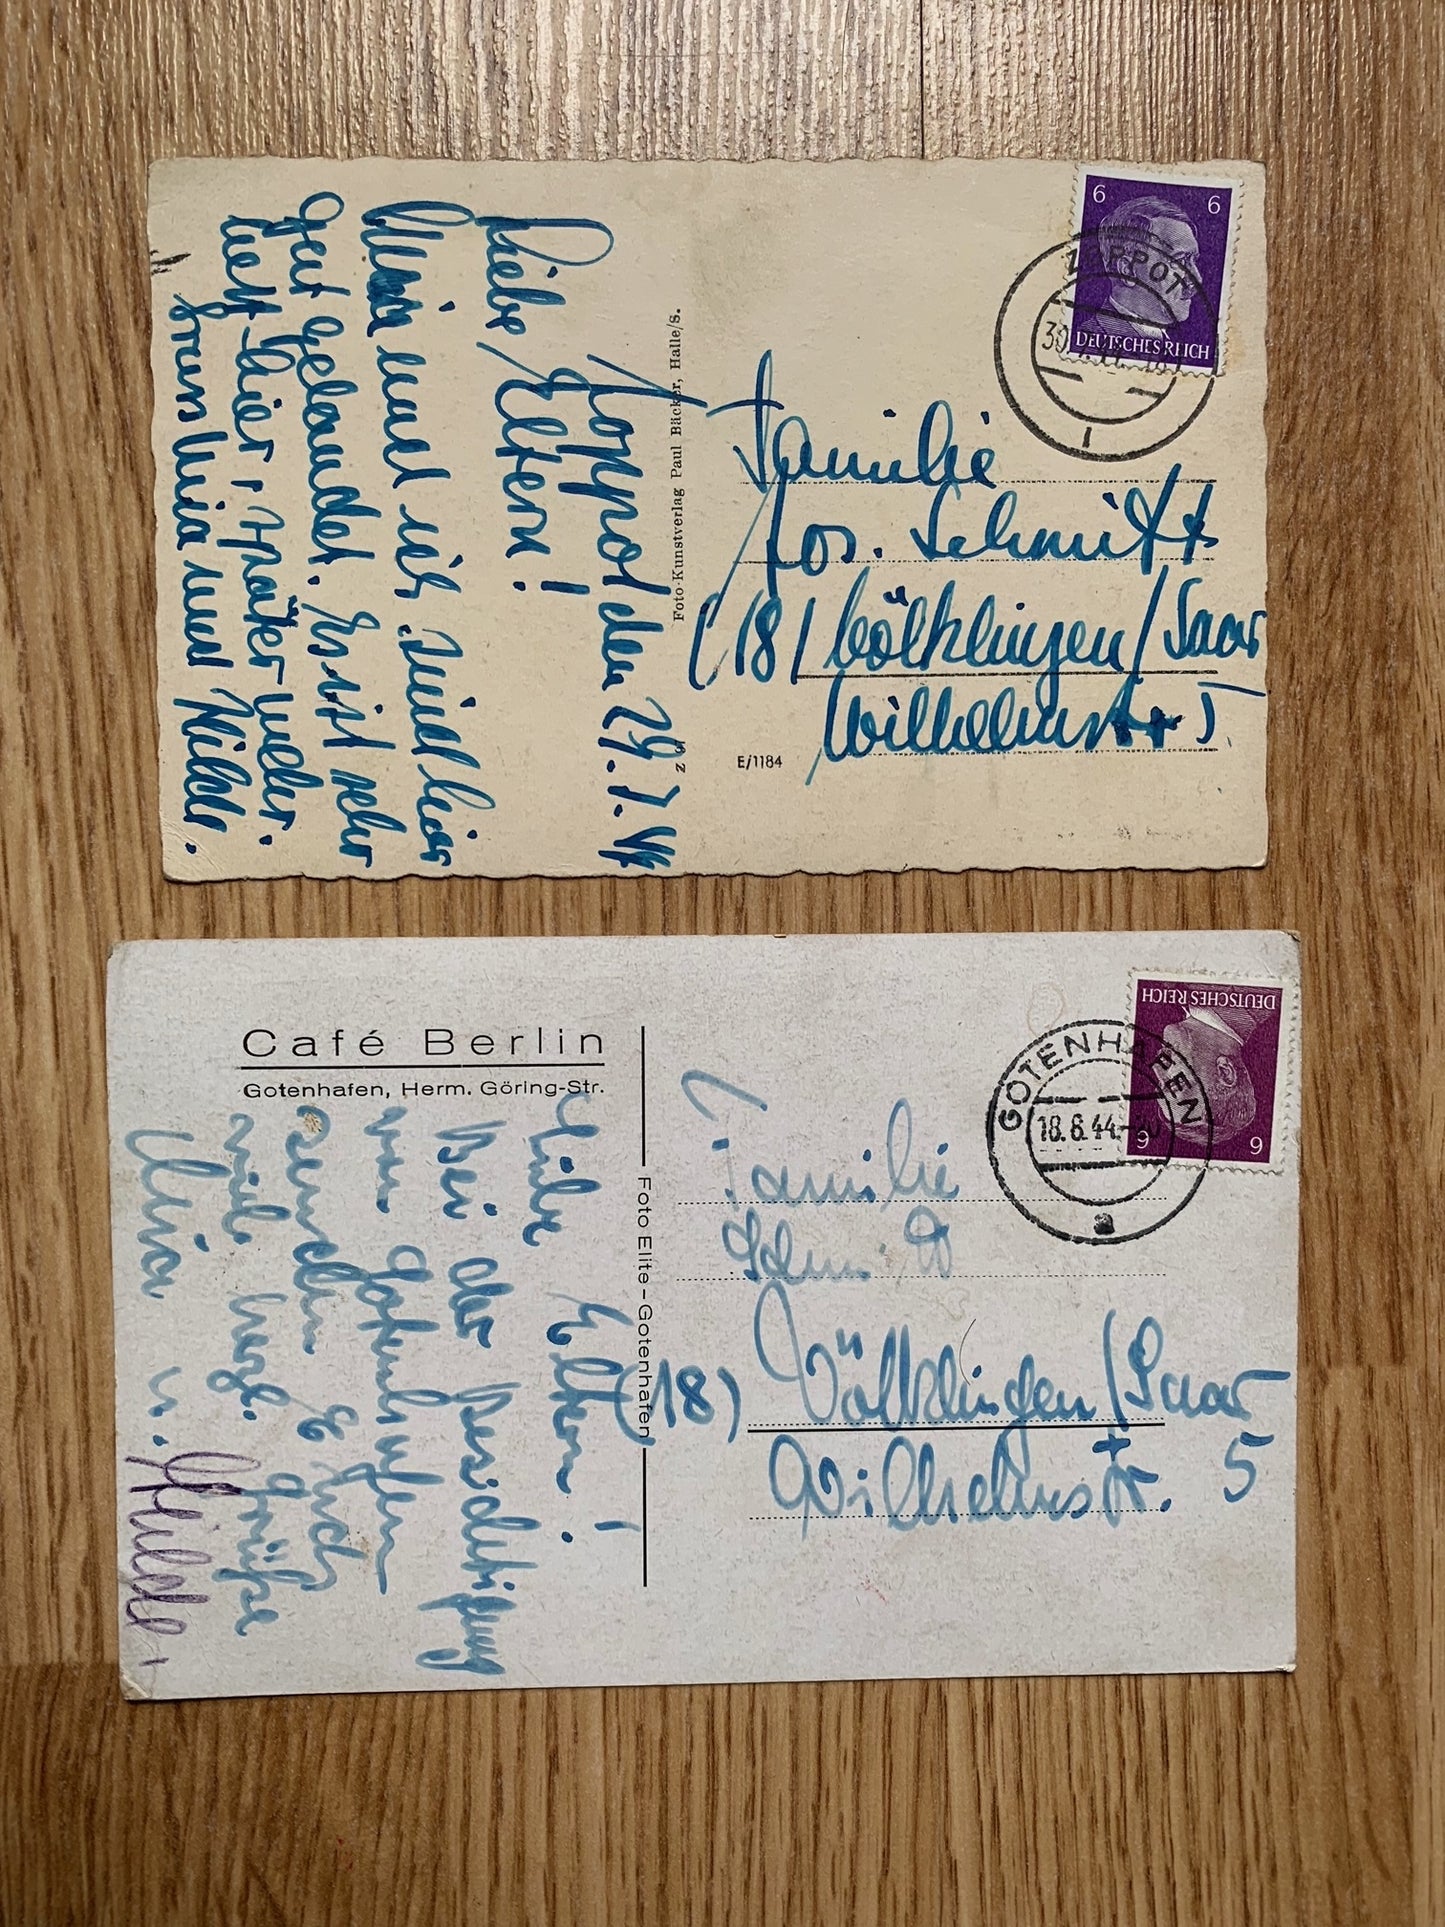 Zoppot den 29.7.44
Liebe Eltern!
Maria und ich sind hier
gut gelandet. Es ist sehr
nett hier, später mehr.
Gruss Maria und Hilde.
Foto-Kunstverlag Paul Bäcker, Halle/S.
Z 91
E/1184
6 6
DEUTSCHES REICH
ZOPPOT
30.7.44
Familie
Jos. Schmitt
(18) Völklingen/Saar
Wilhelmstr 5
Café Berlin
Gotenhafen, Herm. Göring-Str.
Liebe Eltern!
Bei der Besichtigung
von Gotenhafen
senden Euch
viele herzl. Grüße
Maria u. Hilde
Foto Elite - Gotenhafen
DEUTSCHES REICH
6 6
GOTENHAFEN
18.8.44
a
Familie
Schmitt
(18) Völklingen/Saar
Wilhelmstr. 5